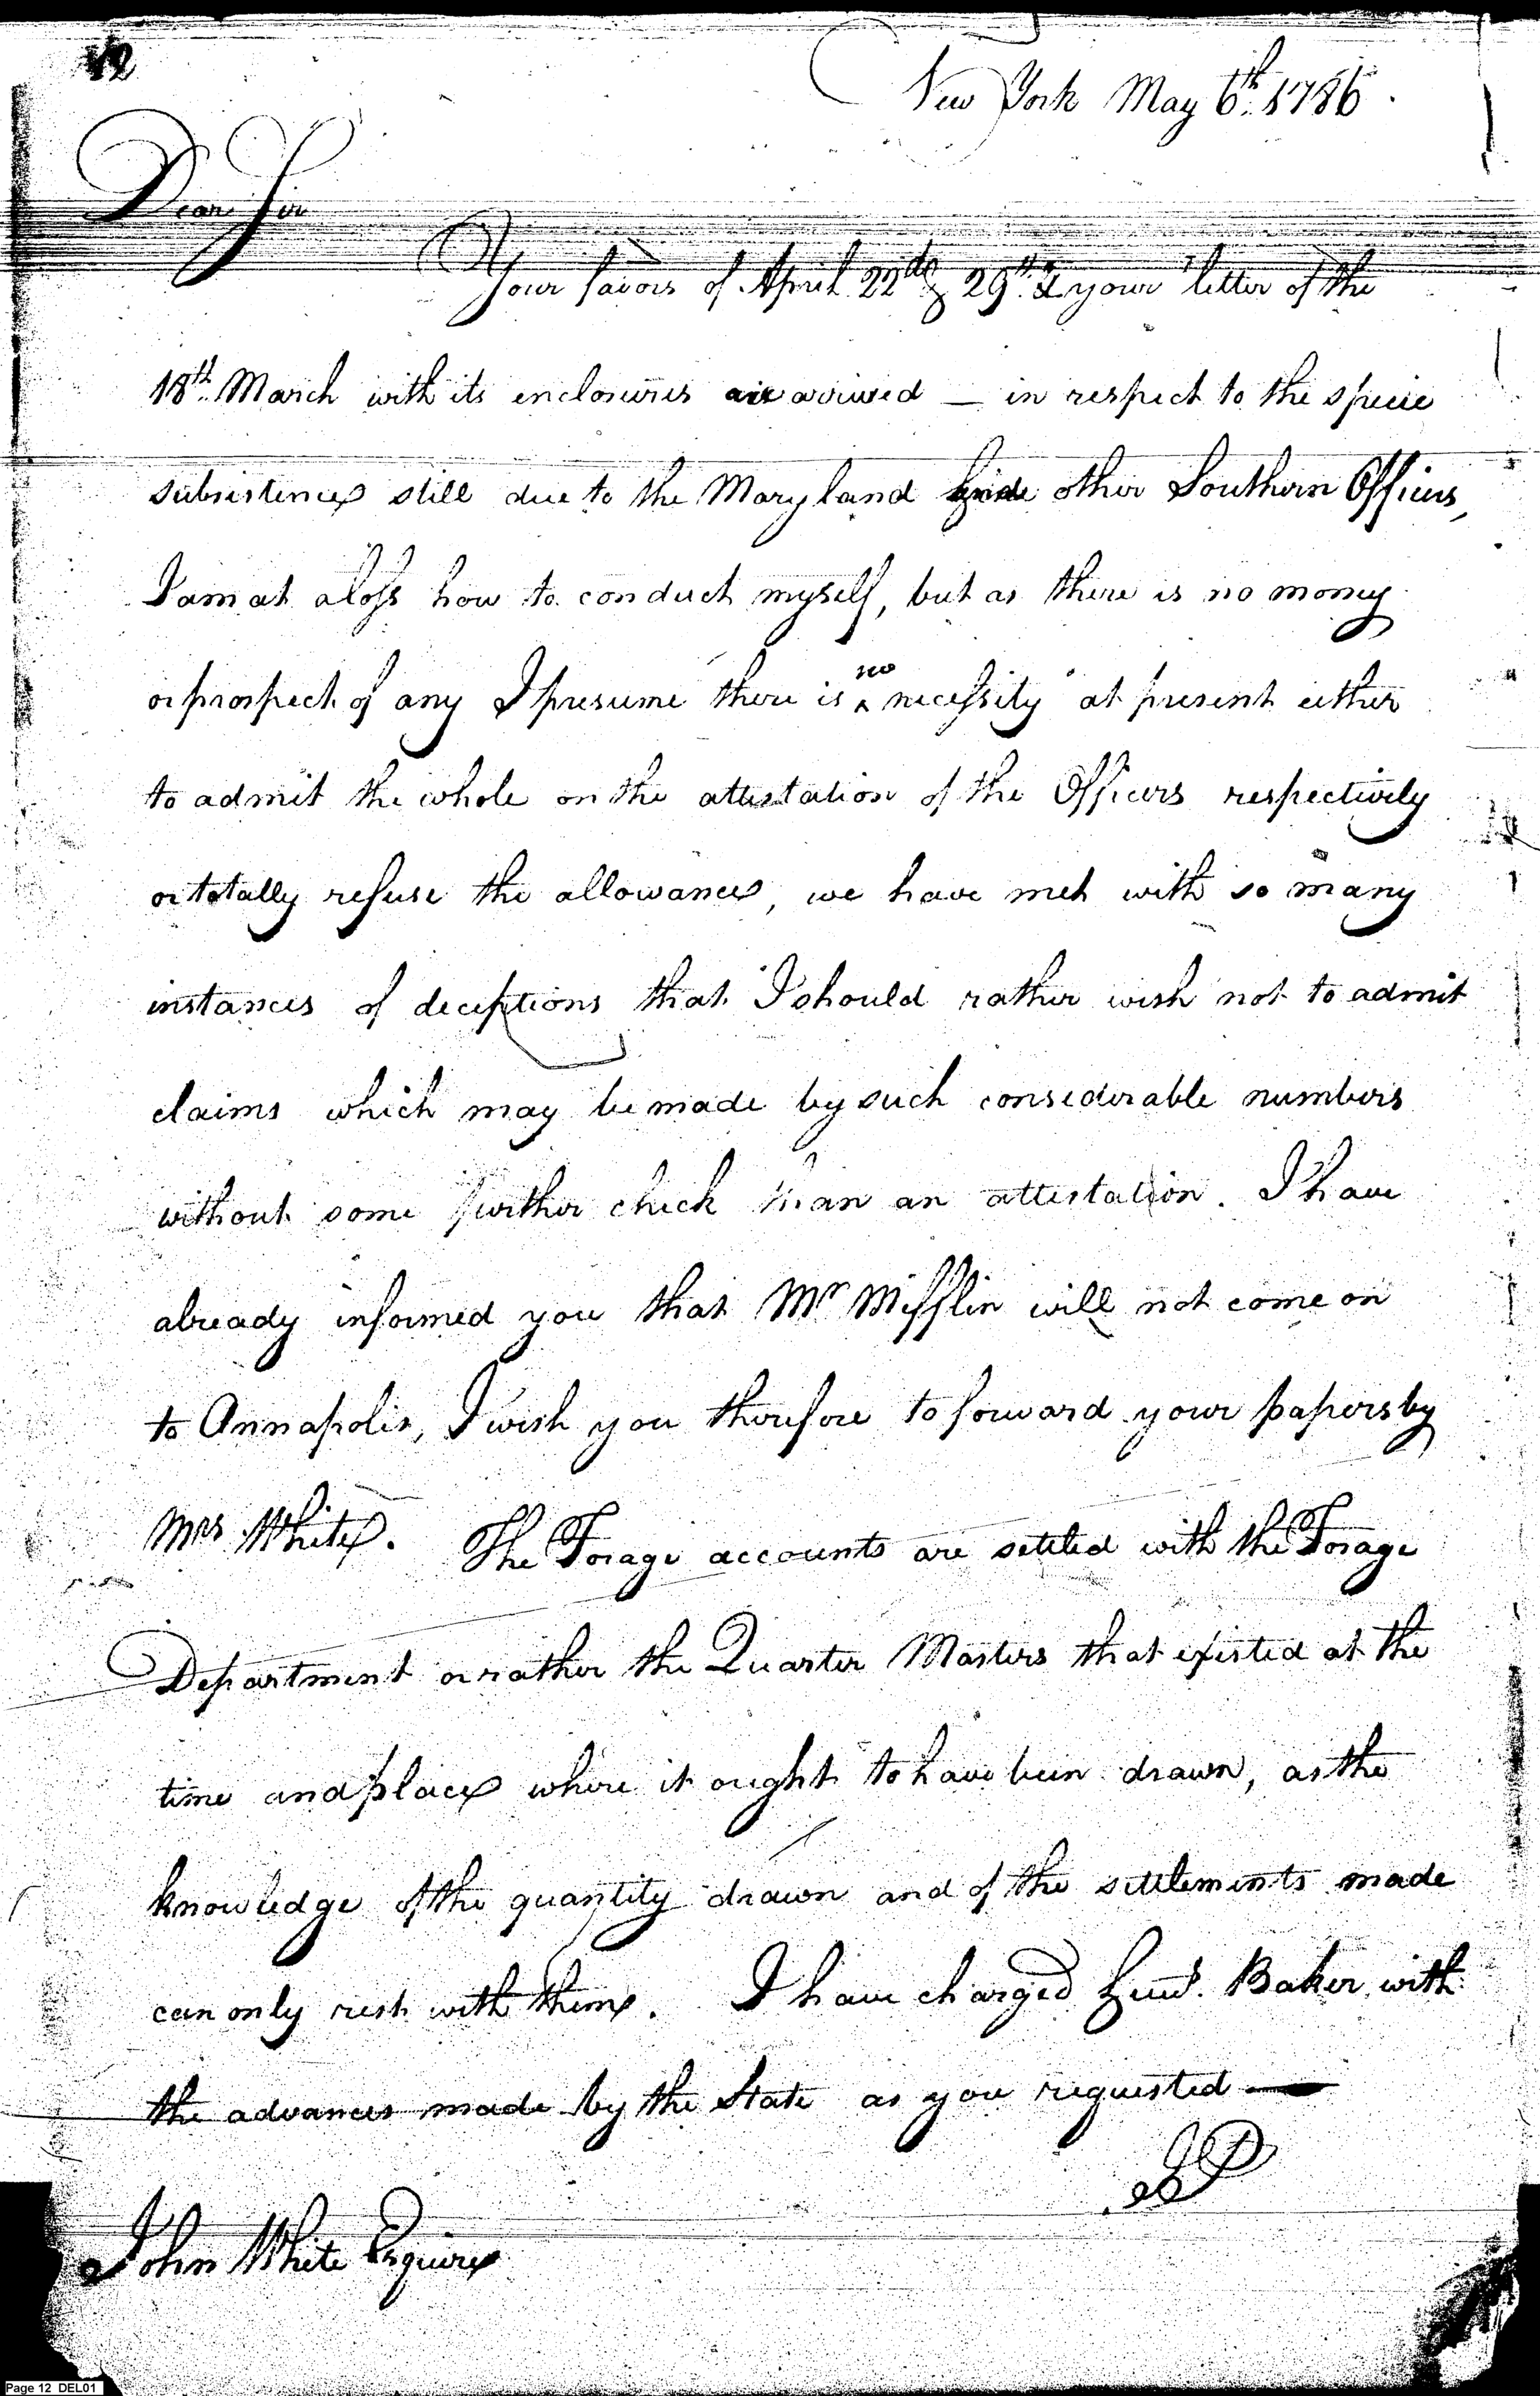 12
New York May 6th. 1786.
Dear Sir
Your favors of April 22d & 29th & your letter of the
18th. March with its enclosures are arrived — in respect to the specie
subsistence still due to the Maryland other Southern Officers,
I am at a loss how to conduct myself, but as there is no money
or prospect of any I presume there is no necessity at present either
to admit the whole on the attestation of the Officers respectively
or totally refuse the allowance, we have met with so many
instances of deceptions that I should rather wish not to admit
claims which may be made by such considerable numbers
without some further check than an attestation. I have
already informed you that Mr Mifflin will not come on
to Annapolis, I wish you therefore to forward your papers by
Mrs White. The Forage accounts are settled with the Forage
Department or rather the Quarter Masters that existed at the
time and place where it ought to have been drawn, as the
knowledge of the quantity drawn and of the settlements made
can only rest with them. I have charged Lieut. Baker with
the advances made by the State as you requested —
JP
John White Esquire
Page 12 DEL01